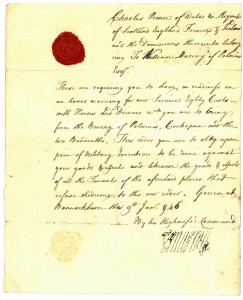 Charles Prince of Wales & Regent
of Scotland England France & Ireland
and the Dominions thereunto belong
ing To William Murray of Polmais
Esqr.
These are requiring you to have in readiness on
an hours warning for our Service Eighty Carts
with Horses and Drivers with you are to bring
from the Barony of Polmais, Cockspue and the
two Bandeaths, This order you are to obey upon
pain of Military Execution to be done against
your goods & effects and likewise the goods & effects
of all the Tennents of the aforesaid places that
refuse obedience to this our order. Given at
Bannockburn this 9th Janry. 1746
By his Highness's Command